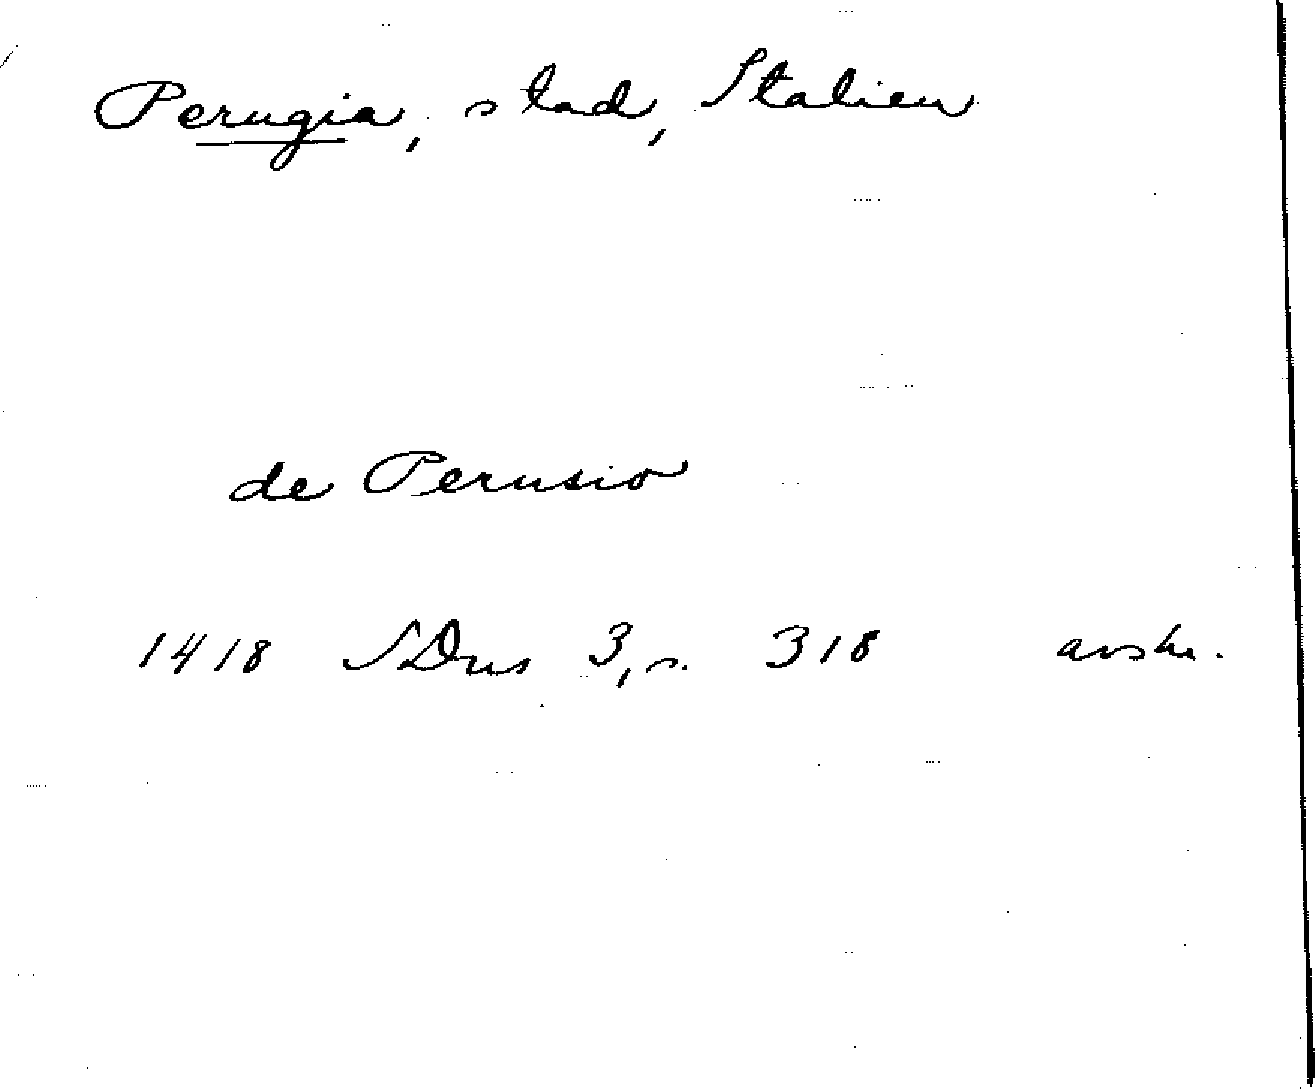 Perugia, stad, Italien
de Perusio
1418 SDns 3, s. 318 avskr.